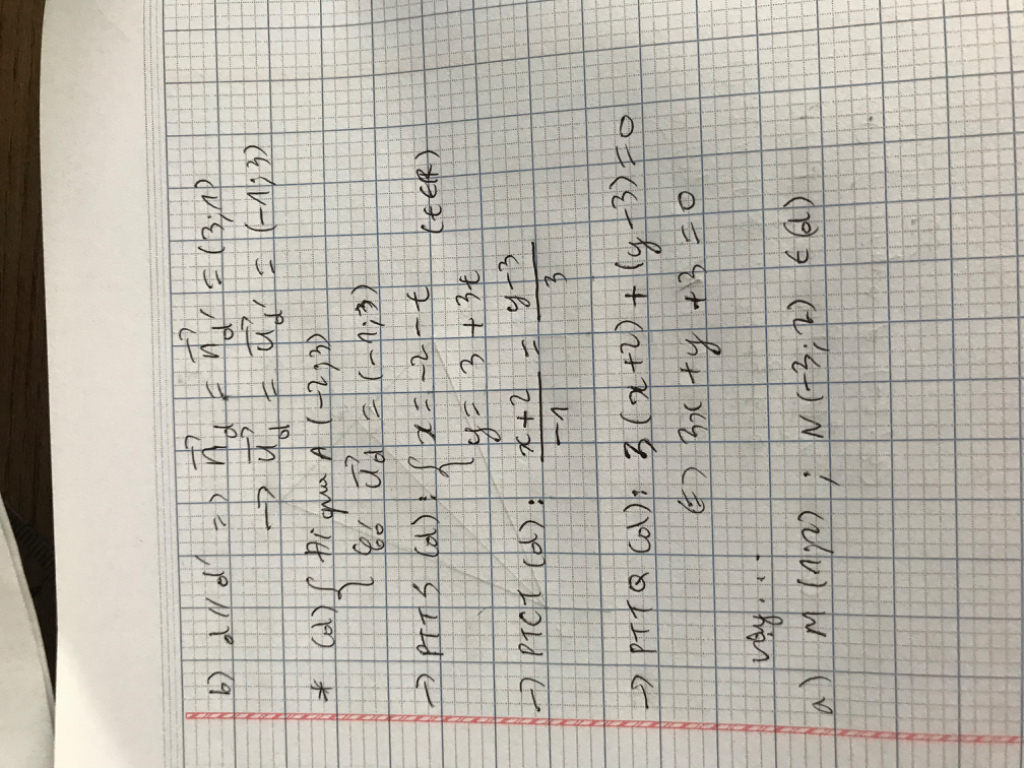 b) d // d' => n⃗_d = n⃗_d' = (3;1)
→ u⃗_d = u⃗_d' = (-1;3)
* (d) { Đi qua A (-2;3)
có u⃗_d = (-1;3)
→ PTTS (d): { x = -2 - t (t∈R)
y = 3 + 3t
→ PTCT (d): x+2 / -1 = y-3 / 3
→ PTTQ (d): 3(x+2) + (y-3) = 0
(=) 3x + y + 3 = 0
vậy...
a) M (1;2) ; N (-3;7) ∈ (d)